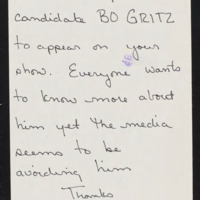 candidate BO GRITZ
to appear on your
show. Everyone wants
to know more about
him yet the media
seems to be
avoiding him
Thanks